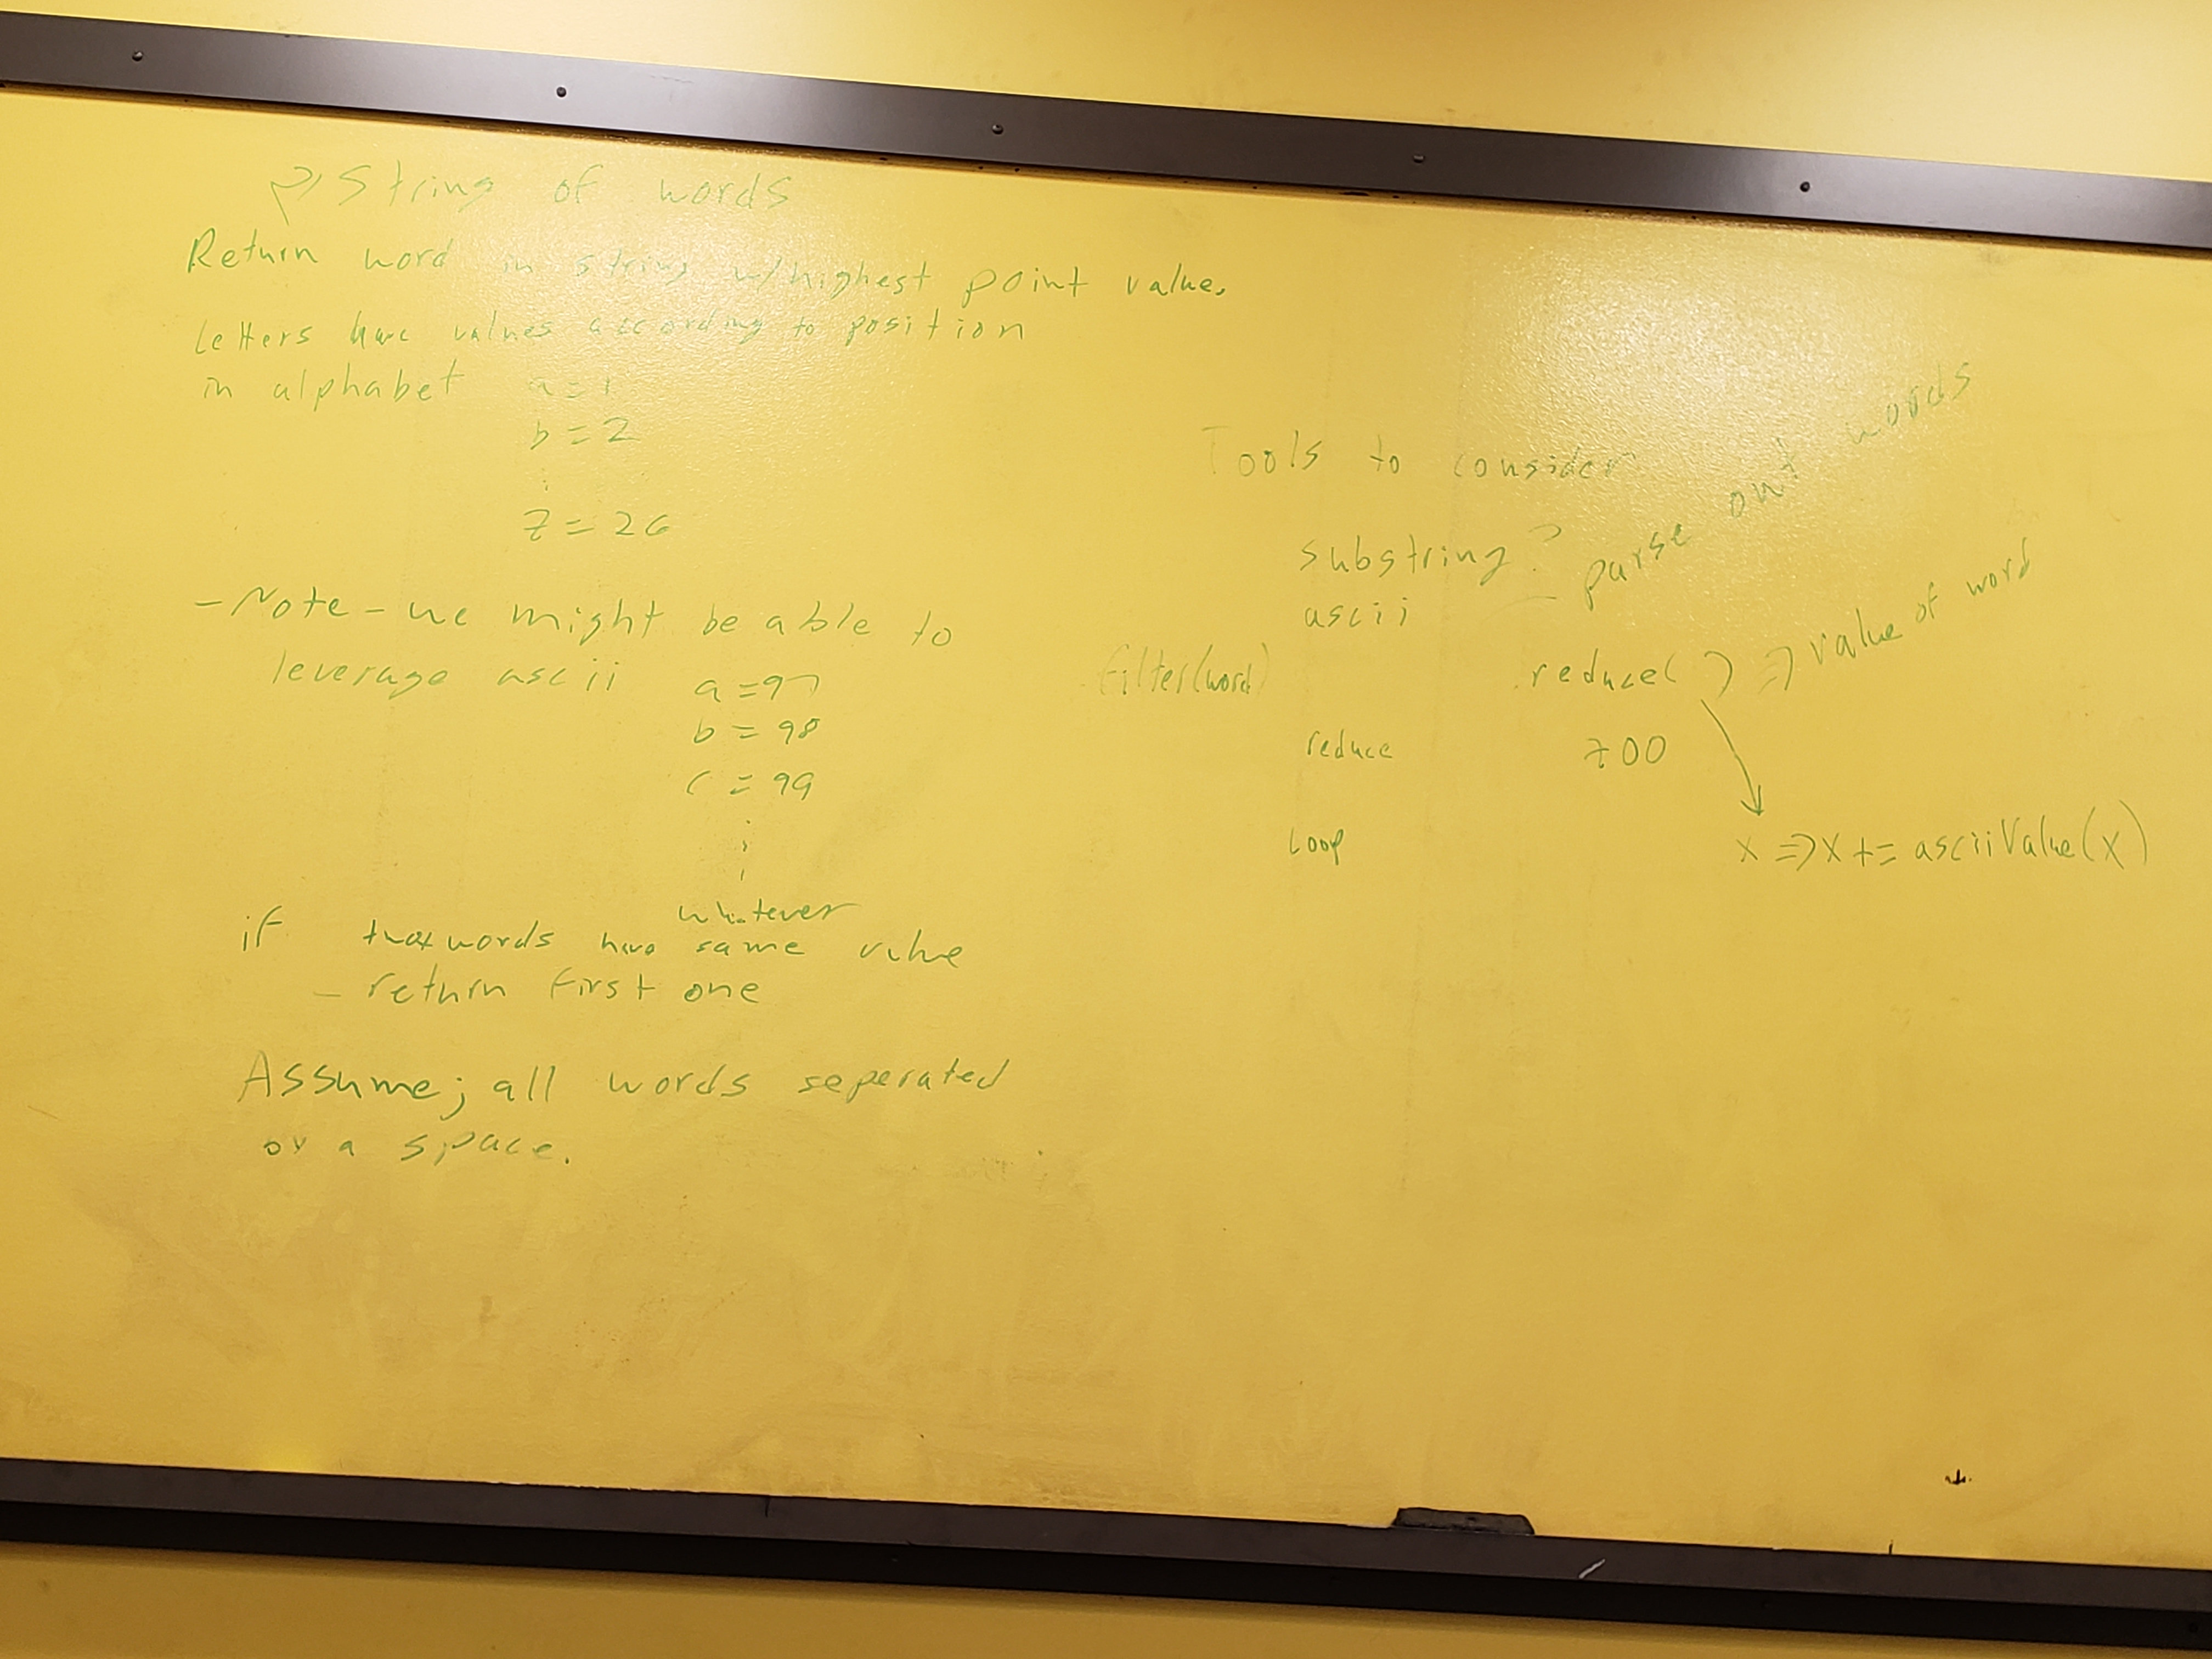 String of words
Return word in string w/highest point value.
Letters have values according to position
in alphabet a=1
b=2
z=26
-Note-we might be able to
leverage ascii a=97
b=98
c=99
whatever
if two words have same value
- return first one
Assume; all words seperated
by a space.
Tools to consider
substring? - parse out words
ascii
filter(word) reduce() => value of word
reduce zoo
Loop x => x += asciiValue(x)